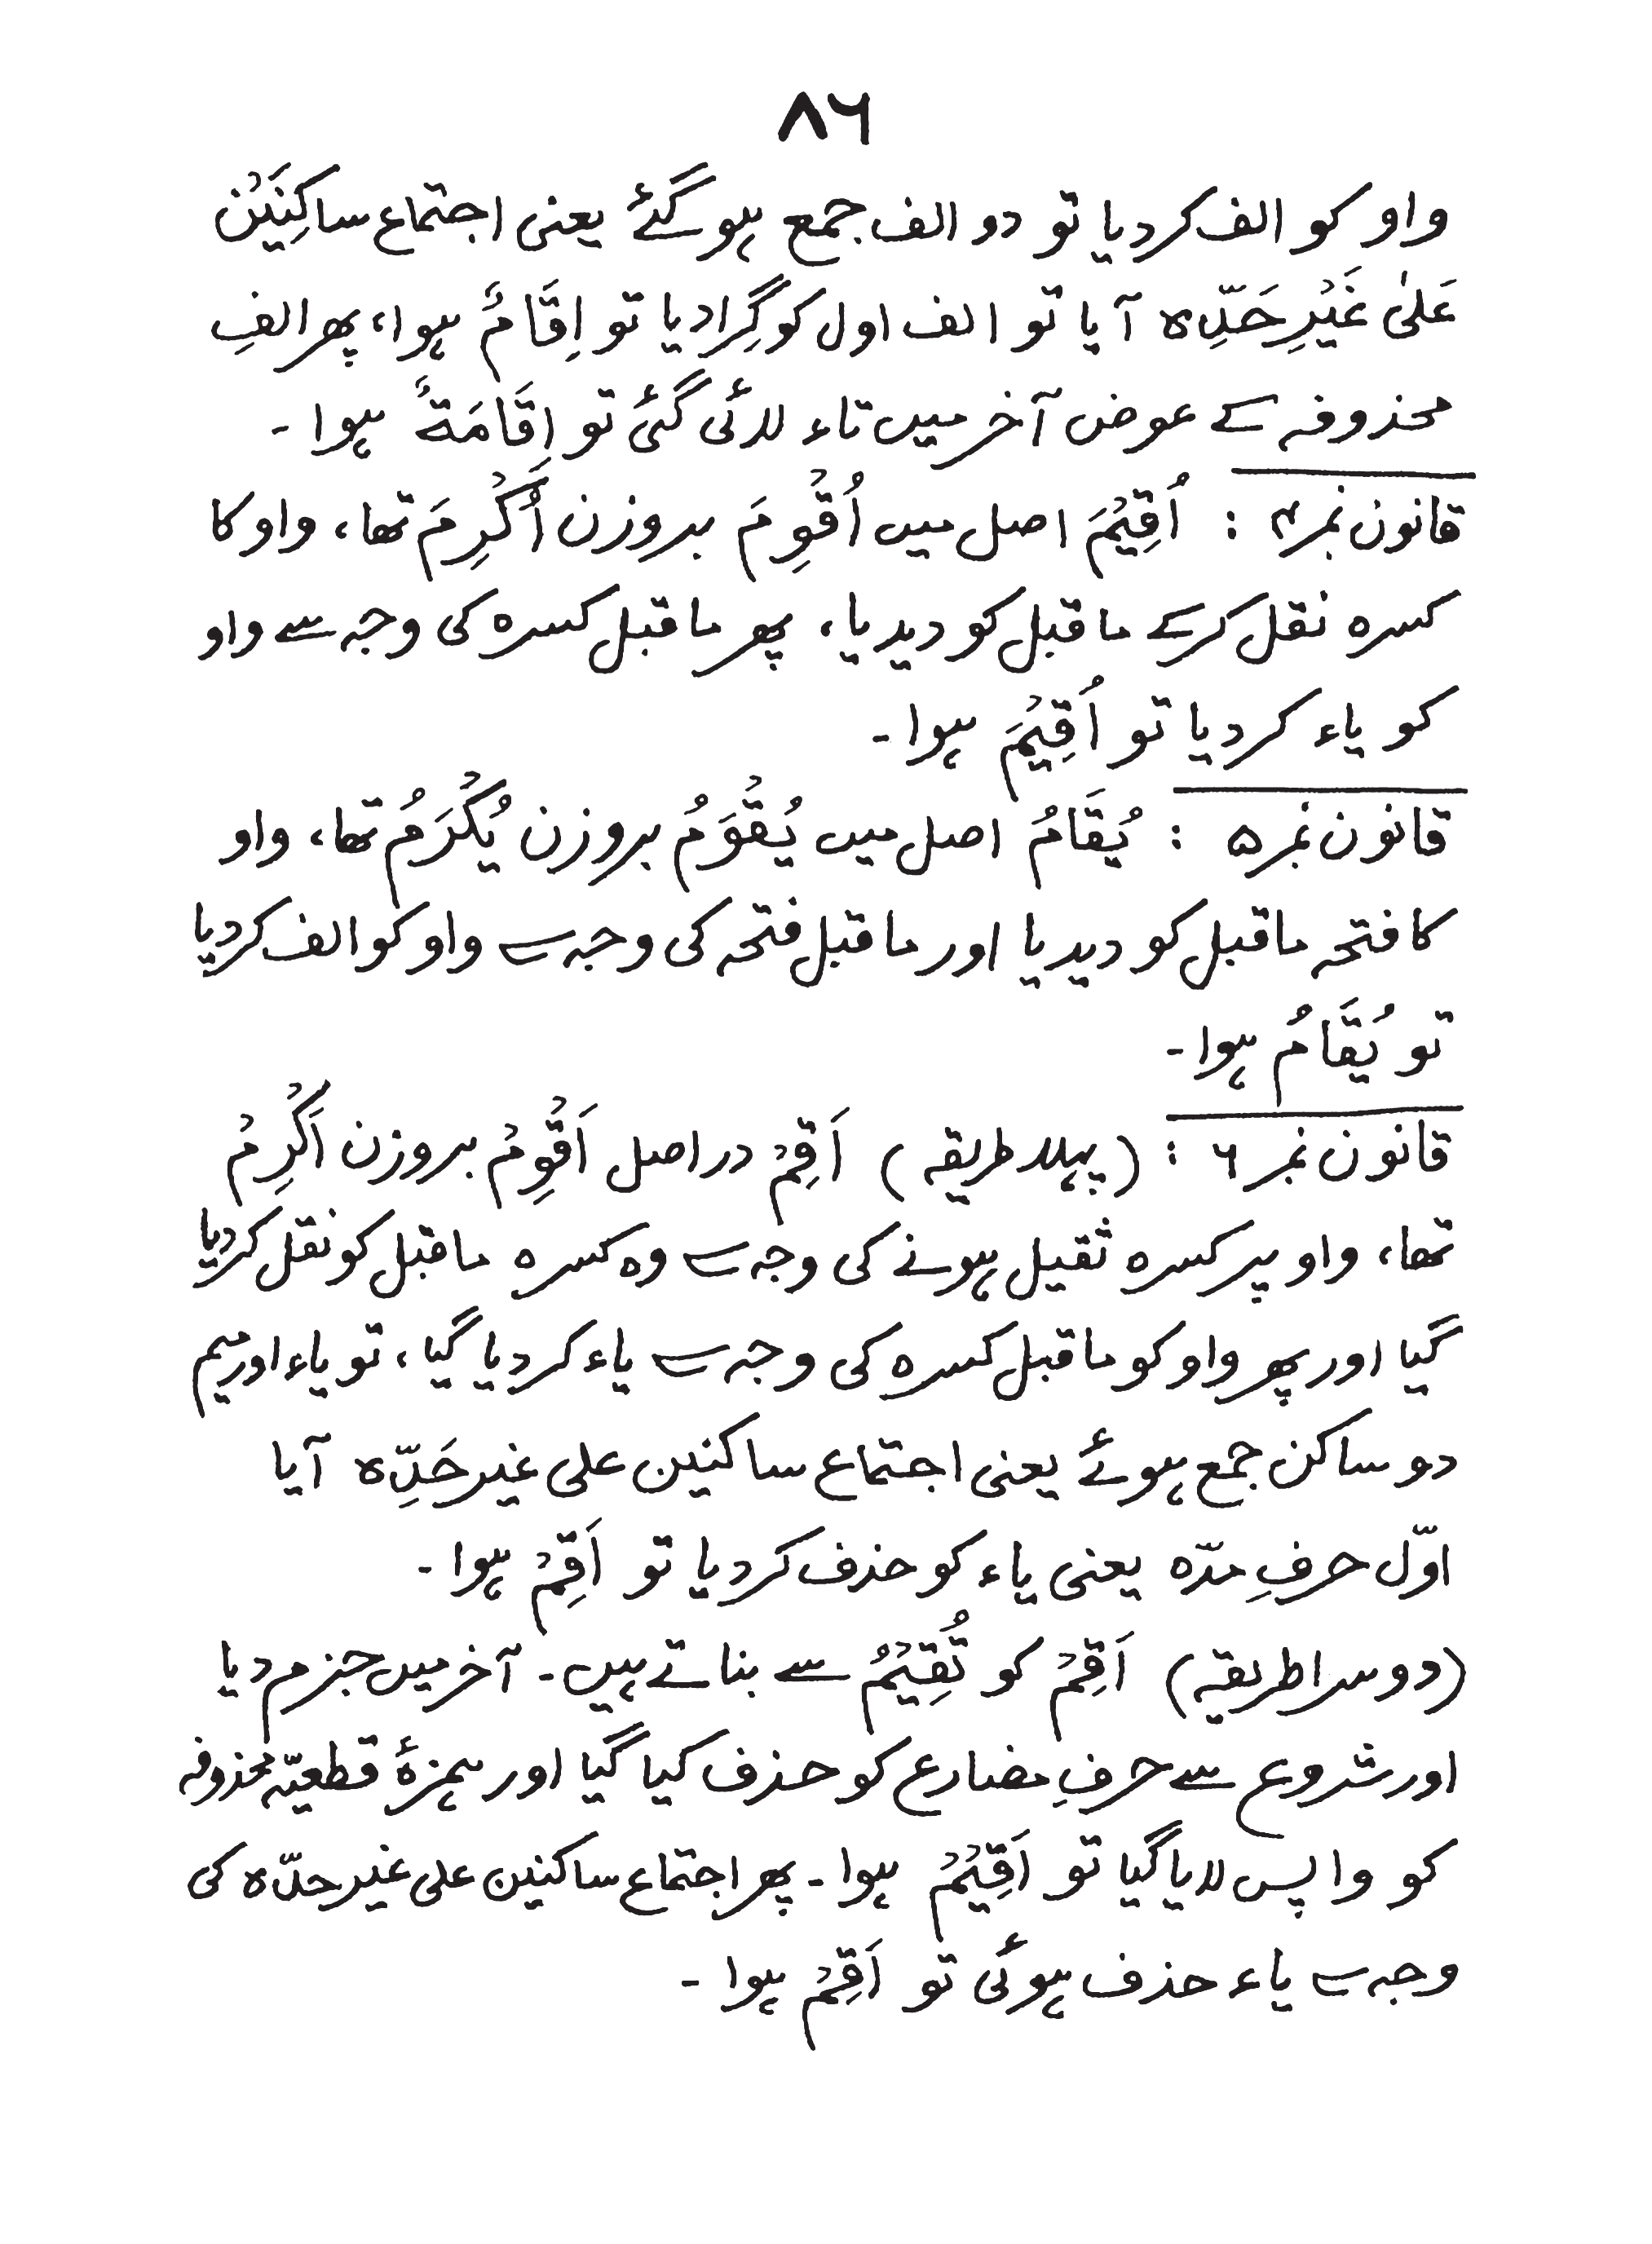 ٨٦
واو کو الف کردیا تو دو الف جمع ہوگئے یعنی اجتماع ساکِنَیْن
عَلیٰ غَیْرِ حَدِّہ آیا تو الف اول کو گِرادیا تو اِقَامٌ ہوا، پھر الفِ
محذوفہ کے عوض آخر میں تاء لائی گئی تو اِقَامَةٌ ہوا ۔
قانون نمبر۴ : اُقِیْمَ اصل میں اُقْوِمَ بروزن اُکْرِمَ تھا، واو کا
کسرہ نقل کرکے ماقبل کو دیدیا، پھر ماقبل کسرہ کی وجہ سے واو
کو یاء کردیا تو اُقِیْمَ ہوا ۔
قانون نمبر ۵ : یُقَامُ اصل میں یُقْوَمُ بروزن یُکْرَمُ تھا، واو
کا فتحہ ماقبل کو دیدیا اور ماقبل فتحہ کی وجہ سے واو کو الف کردیا
تو یُقَامُ ہوا ۔
قانون نمبر ۶ : (پہلا طریقہ) اَقِمْ دراصل اَقْوِمْ بروزن اَکْرِمْ
تھا، واو پر کسرہ ثقیل ہونے کی وجہ سے وہ کسرہ ماقبل کو نقل کردیا
گیا اور پھر واو کو ماقبل کسرہ کی وجہ سے یاء کردیا گیا، تو یاء اور میم
دو ساکن جمع ہوئے یعنی اجتماع ساکنین علی غیر حَدِّہ آیا
اوّل حرفِ مدّہ یعنی یاء کو حذف کردیا تو اَقِمْ ہوا ۔
(دوسرا طریقہ) اَقِمْ کو تُقِیْمُ سے بناتے ہیں ۔ آخر میں جزم دیا
اور شروع سے حرفِ مضارع کو حذف کیا گیا اور ہمزۂ قطعیّہ محذوفہ
کو واپس لایا گیا تو اَقِیْمْ ہوا ۔ پھر اجتماع ساکنین علی غیر حدّہ کی
وجہ سے یاء حذف ہوئی تو اَقِمْ ہوا ۔